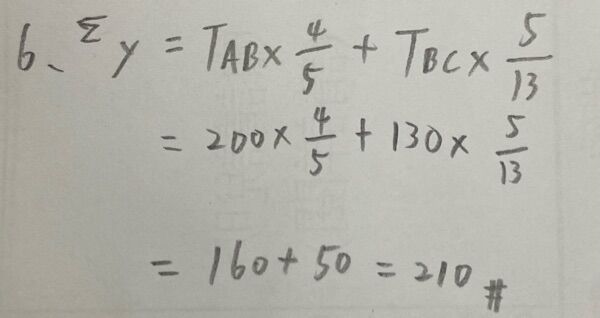 6、Σy = TAB × 4/5 + TBC × 5/13
= 200 × 4/5 + 130 × 5/13
= 160 + 50 = 210 #